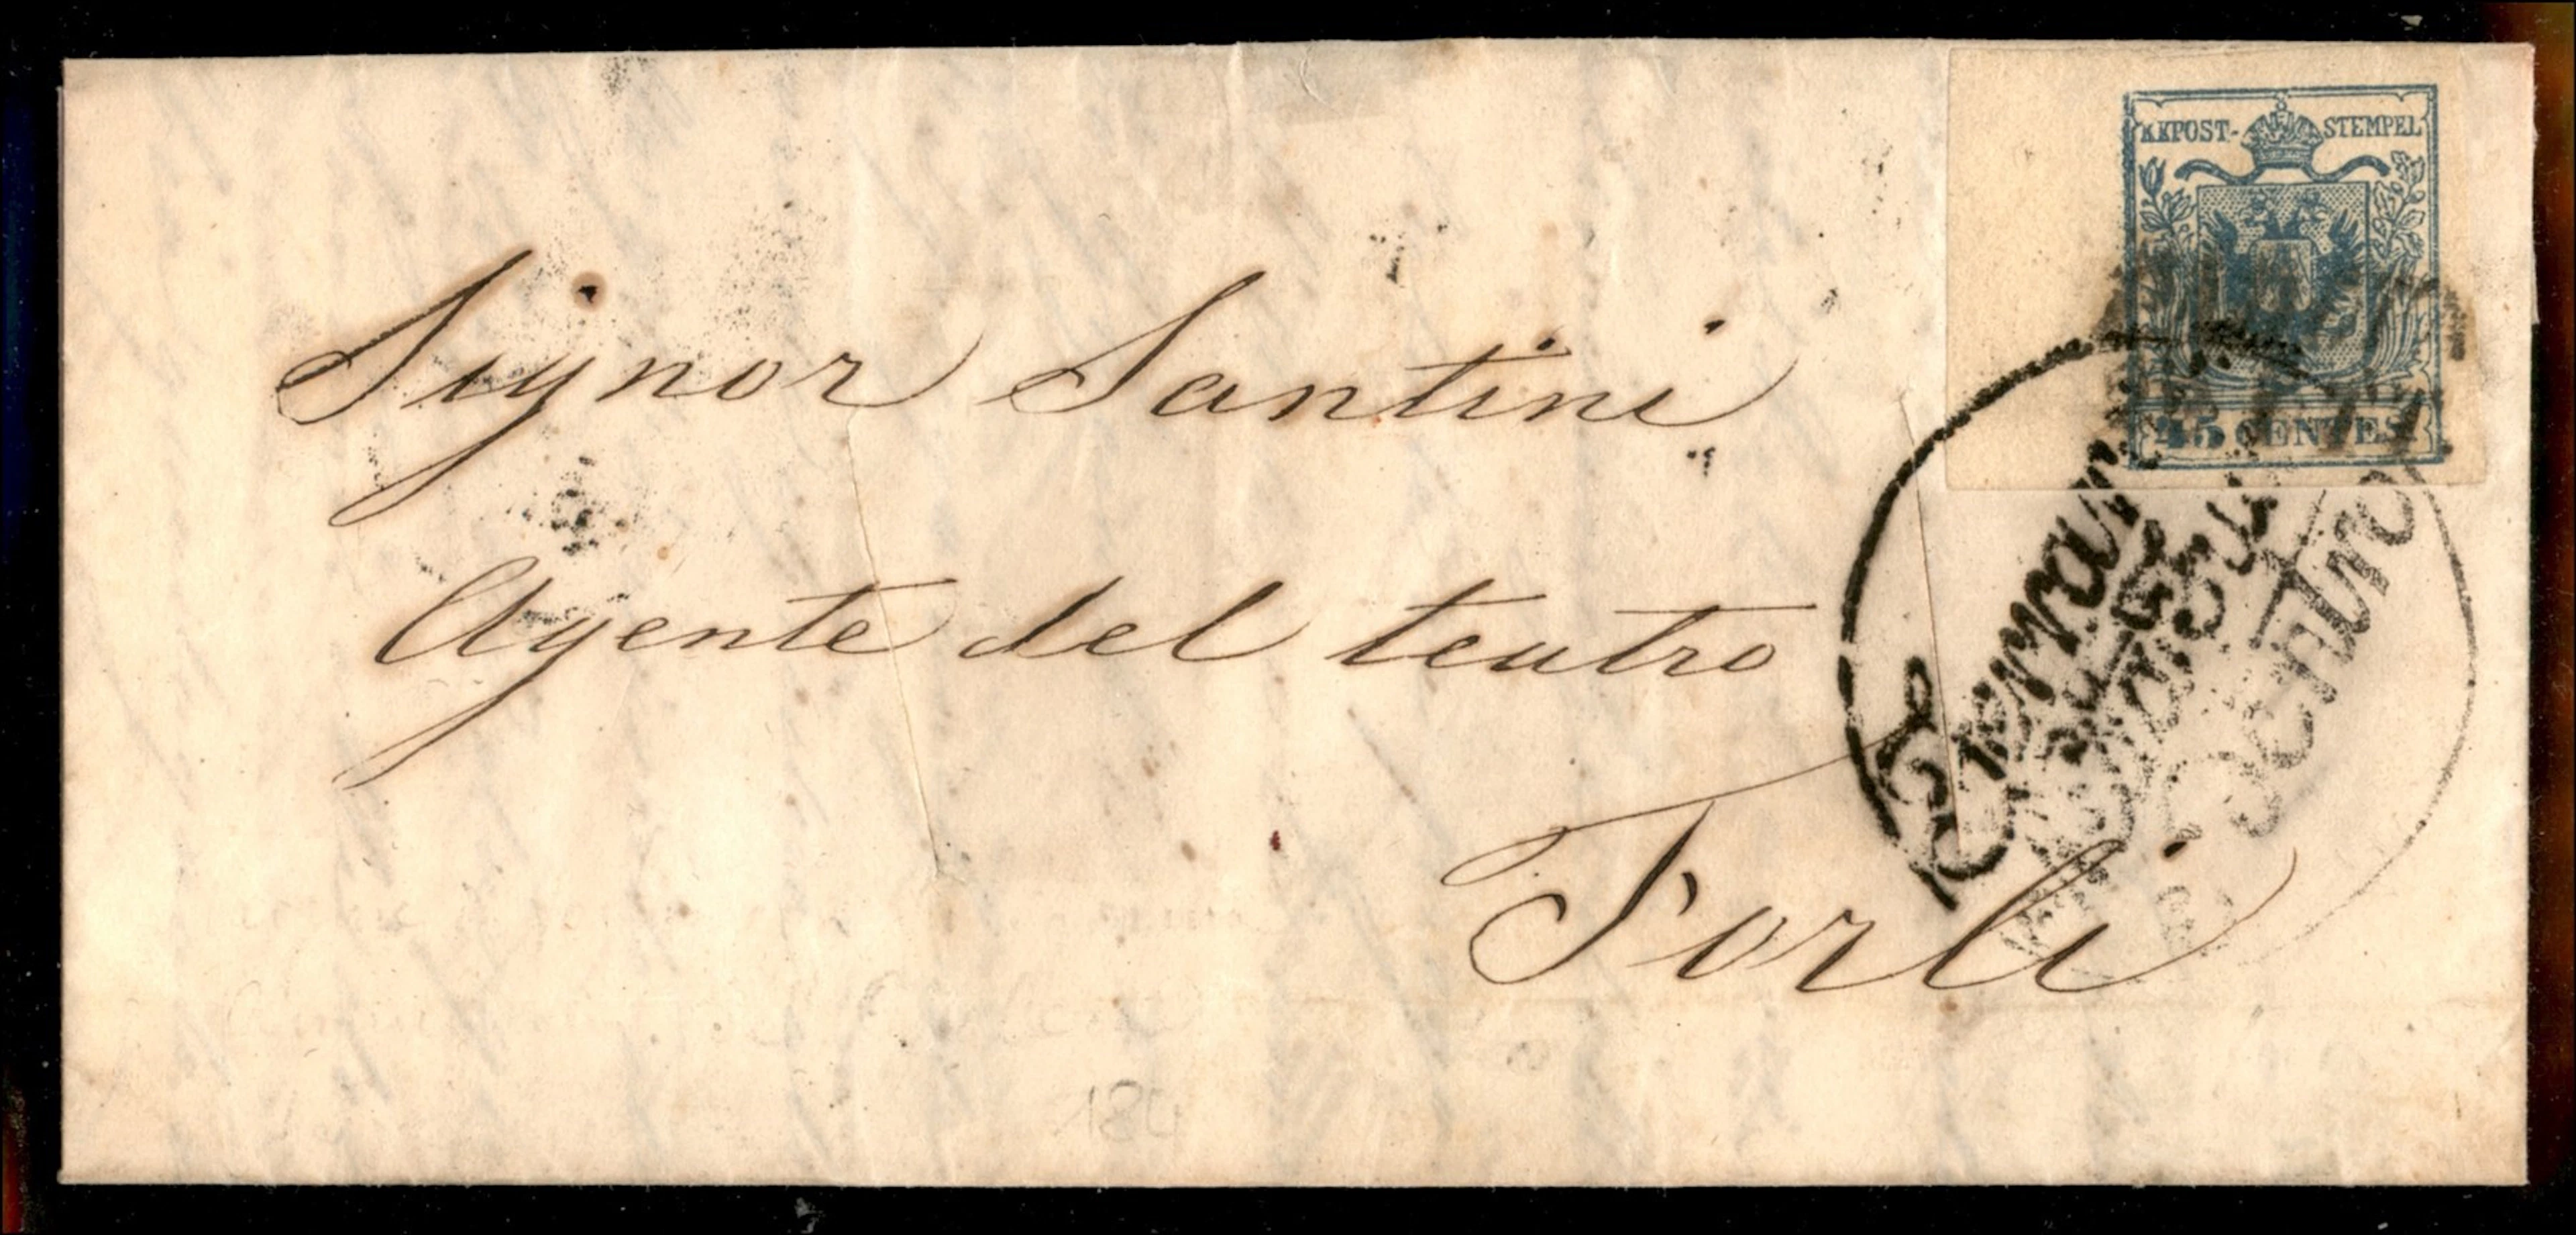 KKPOST-STEMPEL
45 CENTES
Signor Santini
Agente del teatro
Forlì
184